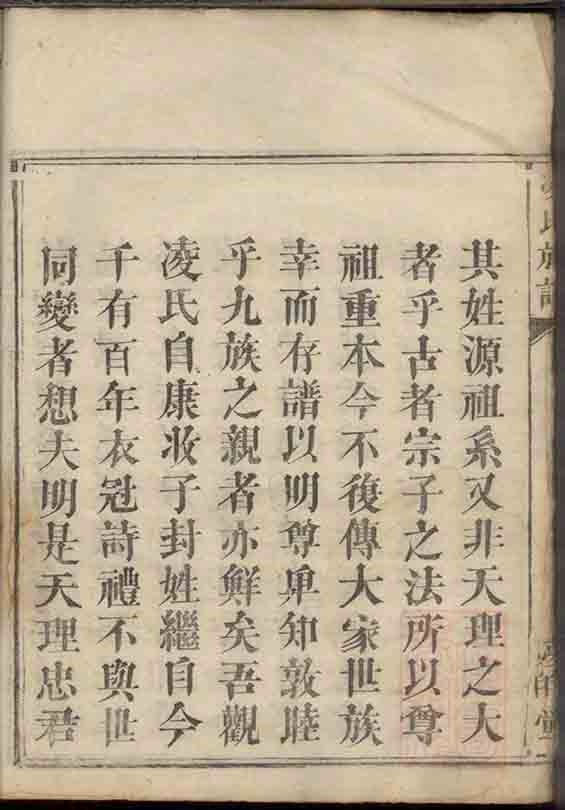 其姓源祖系又非天理之大
者乎古者宗子之法所以尊
祖重本今不復傳大家世族
幸而存譜以明尊卑知敦睦
乎九族之親者亦鮮矣吾觀
凌氏自康叔子封姓繼自今
千有百年衣冠詩禮不與世
同變者想夫明是天理忠君
氏族譜
堂